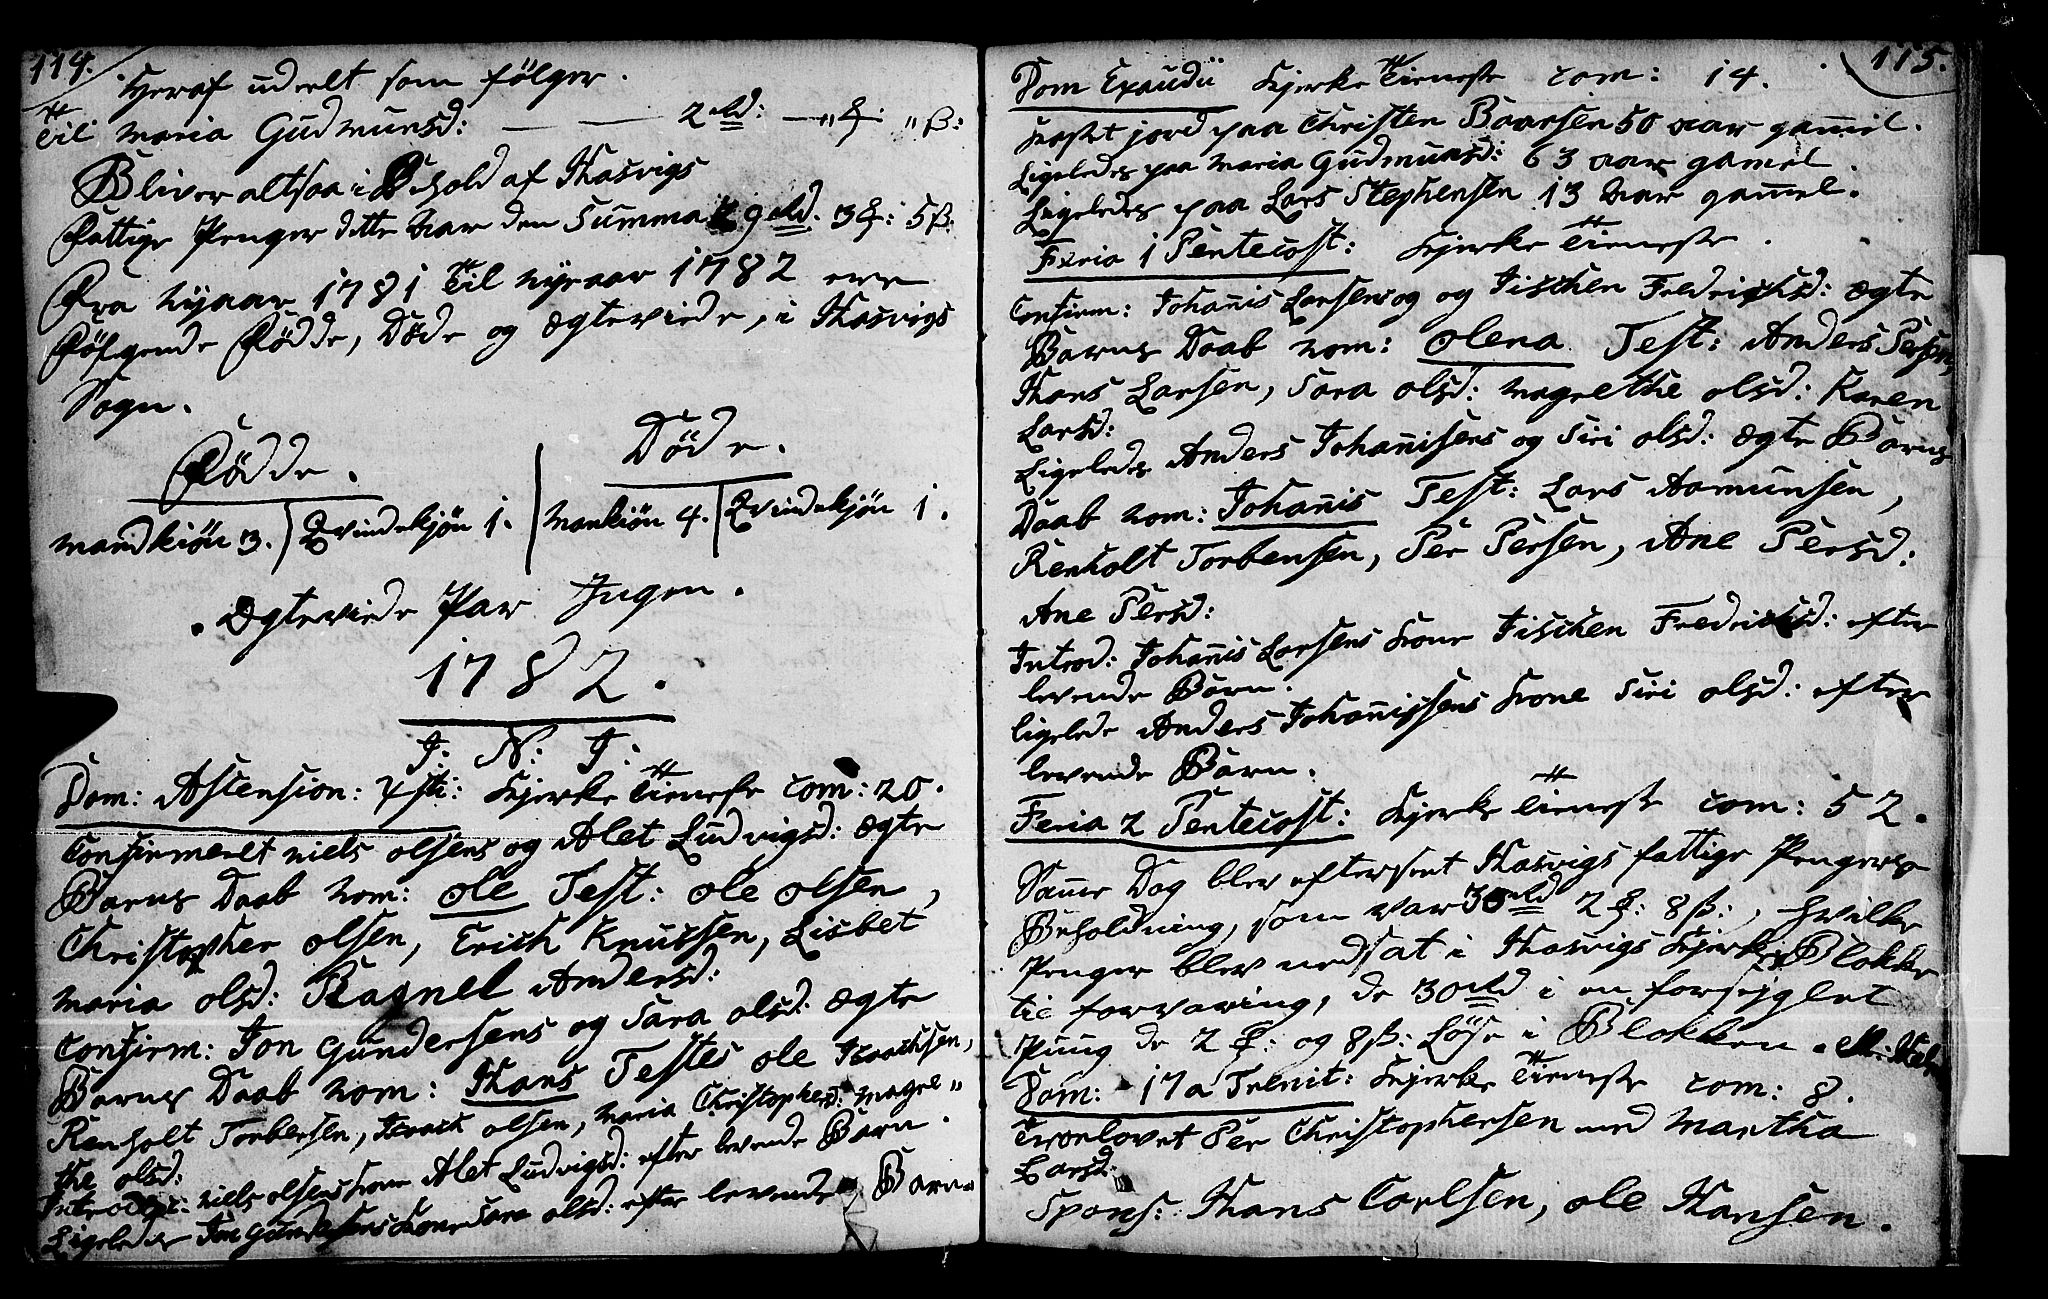 114.
Heraf udeelt som fölger.
Til Maria Gudmunsd: — — 2 rdl: — „ „ ß:
Bliver altsaa i Behold af Hasvigs
Fattige Penger dette Aar den Summa 9 rdl. 3 : 5 ß.
Fra Nyaar 1781 Til Nyeaar 1782 ere
Fölgende Födde, Döde og Ægteviede, i Hasvigs
Sogn.
Födde.
Döde.
Mandkiön 3. Qvindekjön 1. Mankiön 4. Qvindekjön 1.
Ægteviede Par Ingen.
1782.
J: N: J:
Dom: Ascension: Xsti: Kjerke Tieneste com: 20.
Confirmeret Niels Olsens og Alet Ludvigsd: Ægte
Barns Daab Nom: Ole Test: Ole Olsen,
Christopher Olsen, Erich Knutsen, Lisbet
Maria Olsd: Ragnel Andersd:
Confirm: Jon Gundersens og Sara Olsd: Ægte
Barns Daab Nom: Hans Testes Ole
Renholt Torbersen, Olsen, Maria Christophersd: Magre„
the Olsd:
Niels Olsens Kone Alet Ludvigsd: efter levende Barn.
Ligeledes Jon Gundersens Kone Sara Olsd: efter levende Barn.
115.
Dom Exaudii Kjerke Tieneste com: 14.
Kastet jord paa Christen Baarsen 50 aar gamel.
Ligeledes paa Maria Gudmunsd: 63 aar gamel
Ligeledes paa Lars Stephensen 13 Aar gamel.
Feria 1 Pentecost: Kjerke Tieneste.
Confirm: Johanis Larsens og og Fredrichsd: Ægte
Barns Daab Nom: Olena Test: Anders Persen,
Hans Larsen, Sara Olsd: Magrethe Olsd: Karen
Larsd:
Ligeledes Anders Johanisens og Siri Olsd: Ægte Barns
Daab Nom: Johanis Test: Lars Aamunsen,
Renholt Torbensen, Per Persen, Ane Persd:
Ane Persd:
Introd: Johanis Larsens Kone Fredrichsd: efter
levende Barn.
ligelede Anders Johanissens Kone Siri Olsd: efter
levende Barn.
Feria 2 Pentecost: Kjerke Tieneste com: 52.
Samme Dag blev efterseet Hasvigs fattige Pengers
Beholdning, som var 30 rdl 2 : 8 ß:, hvilke
Penger blev nedsat i Hasvigs Kjerkes Blokke
til forvaring, de 30 rdl i en forseiglet
Pung de 2 : og 8 ß: Löse i Blokken.
Dom: 17a Trinit: Kjerke Tieneste com: 8.
Troelovet Per Christophersen med Martha
Larsd:
Spons: Hans Carlsen, Ole Hansen.